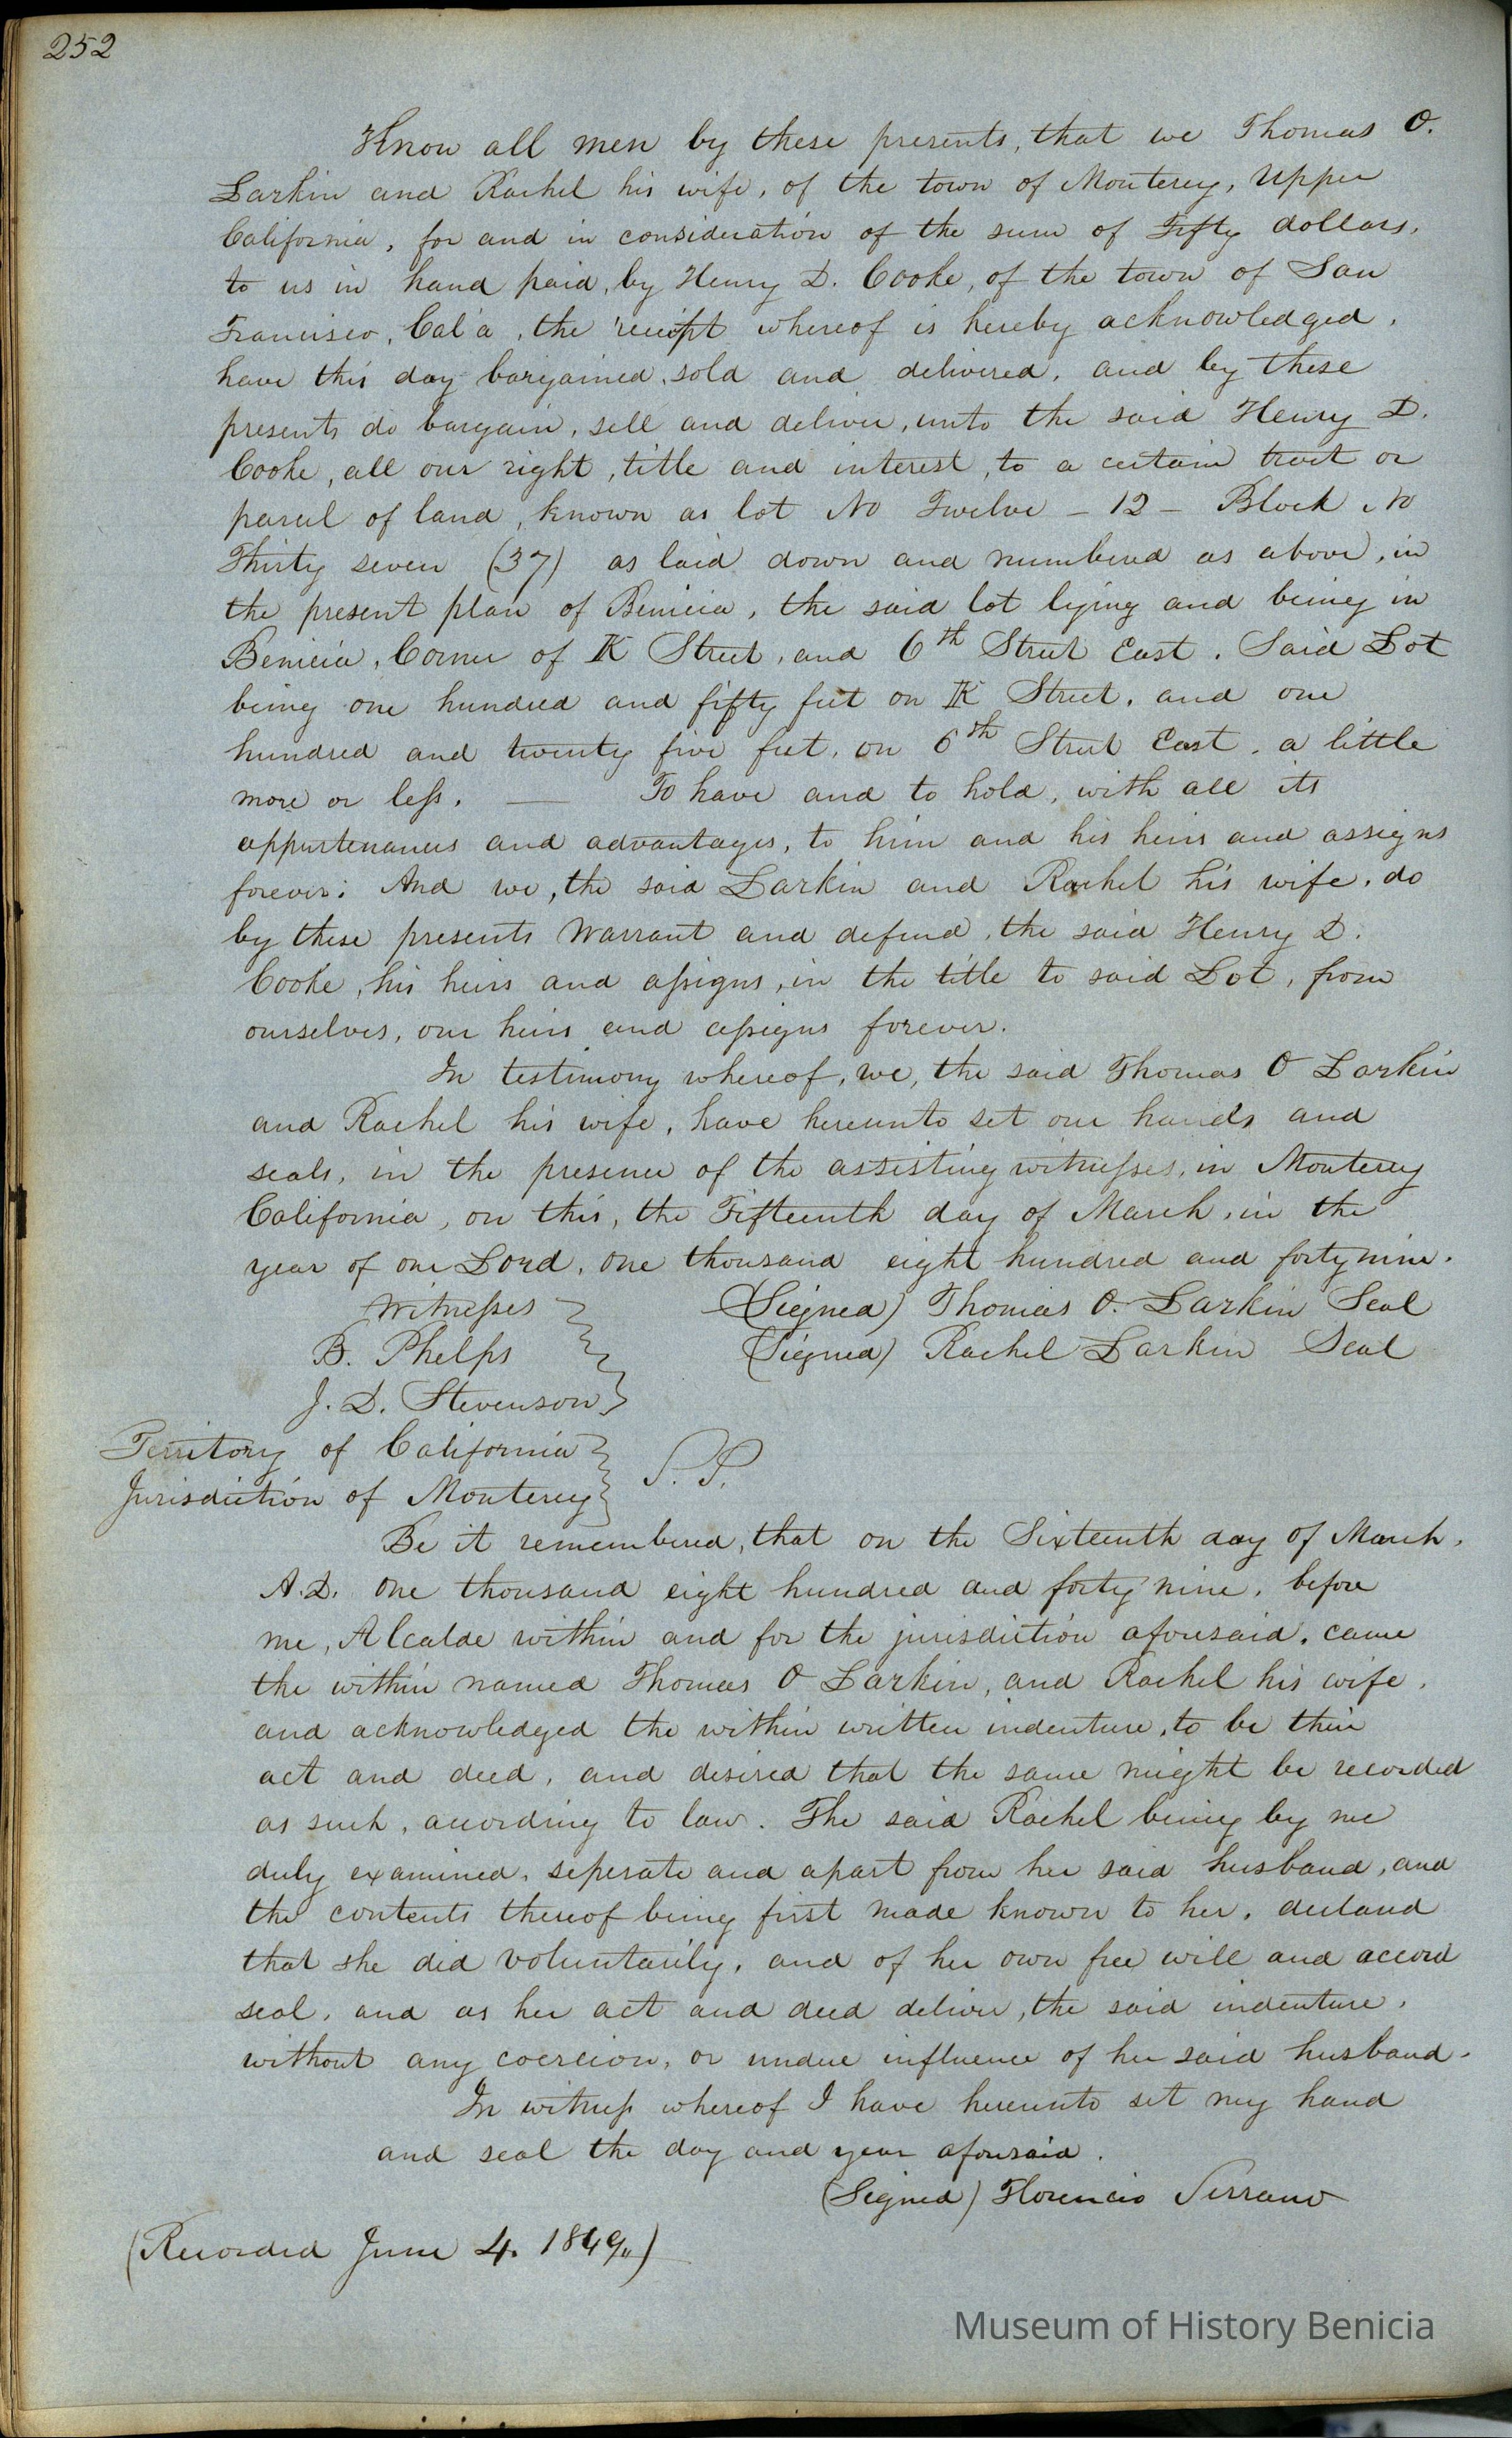 252
Know all men by these presents, that we Thomas O.
Larkin and Rachel his wife, of the town of Monterey, Upper
California, for and in consideration of the sum of Fifty dollars,
to us in hand paid, by Henry D. Cooke, of the town of San
Francisco, Cal'a, the receipt whereof is hereby acknowledged,
have this day bargained, sold and delivered, and by these
presents do bargain, sell and deliver, unto the said Henry D.
Cooke, all our right, title and interest, to a certain tract or
parcel of land, known as lot No Twelve – 12 – Block No
Thirty seven (37) as laid down and numbered as above, in
the present plan of Benicia, the said lot lying and being in
Benicia, Corner of K Street, and 6th Street East. Said Lot
being one hundred and fifty feet on K Street, and one
hundred and twenty five feet, on 6th Street East, a little
more or less. — To have and to hold, with all its
appurtenances and advantages, to him and his heirs and assigns
forever: And we, the said Larkin and Rachel his wife, do
by these presents Warrant and defend, the said Henry D.
Cooke, his heirs and assigns, in the title to said Lot, from
ourselves, our heirs and assigns forever.
In testimony whereof, we, the said Thomas O Larkin
and Rachel his wife, have hereunto set our hands and
seals, in the presence of the assisting witnesses, in Monterey
California, on this, the Fifteenth day of March, in the
year of our Lord, one thousand eight hundred and forty nine.
Witnesses (Signed) Thomas O. Larkin Seal
B. Phelps (Signed) Rachel Larkin Seal
J. D. Stevenson
Territory of California
Jurisdiction of Monterey S.S.
Be it remembered, that on the Sixteenth day of March,
A.D. one thousand eight hundred and forty nine, before
me, Alcalde within and for the jurisdiction aforesaid, came
the within named Thomas O Larkin, and Rachel his wife,
and acknowledged the within written indenture, to be their
act and deed, and desired that the same might be recorded
as such, according to law. The said Rachel being by me
duly examined, seperate and apart from her said husband, and
the contents thereof being first made known to her, declared
that she did voluntarily, and of her own free will and accord
seal, and as her act and deed deliver, the said indenture,
without any coercion, or undue influence of her said husband.
In witness whereof I have hereunto set my hand
and seal the day and year aforesaid.
(Signed) Florencio Serrano
(Recorded June 4. 1849,,)
Museum of History Benicia